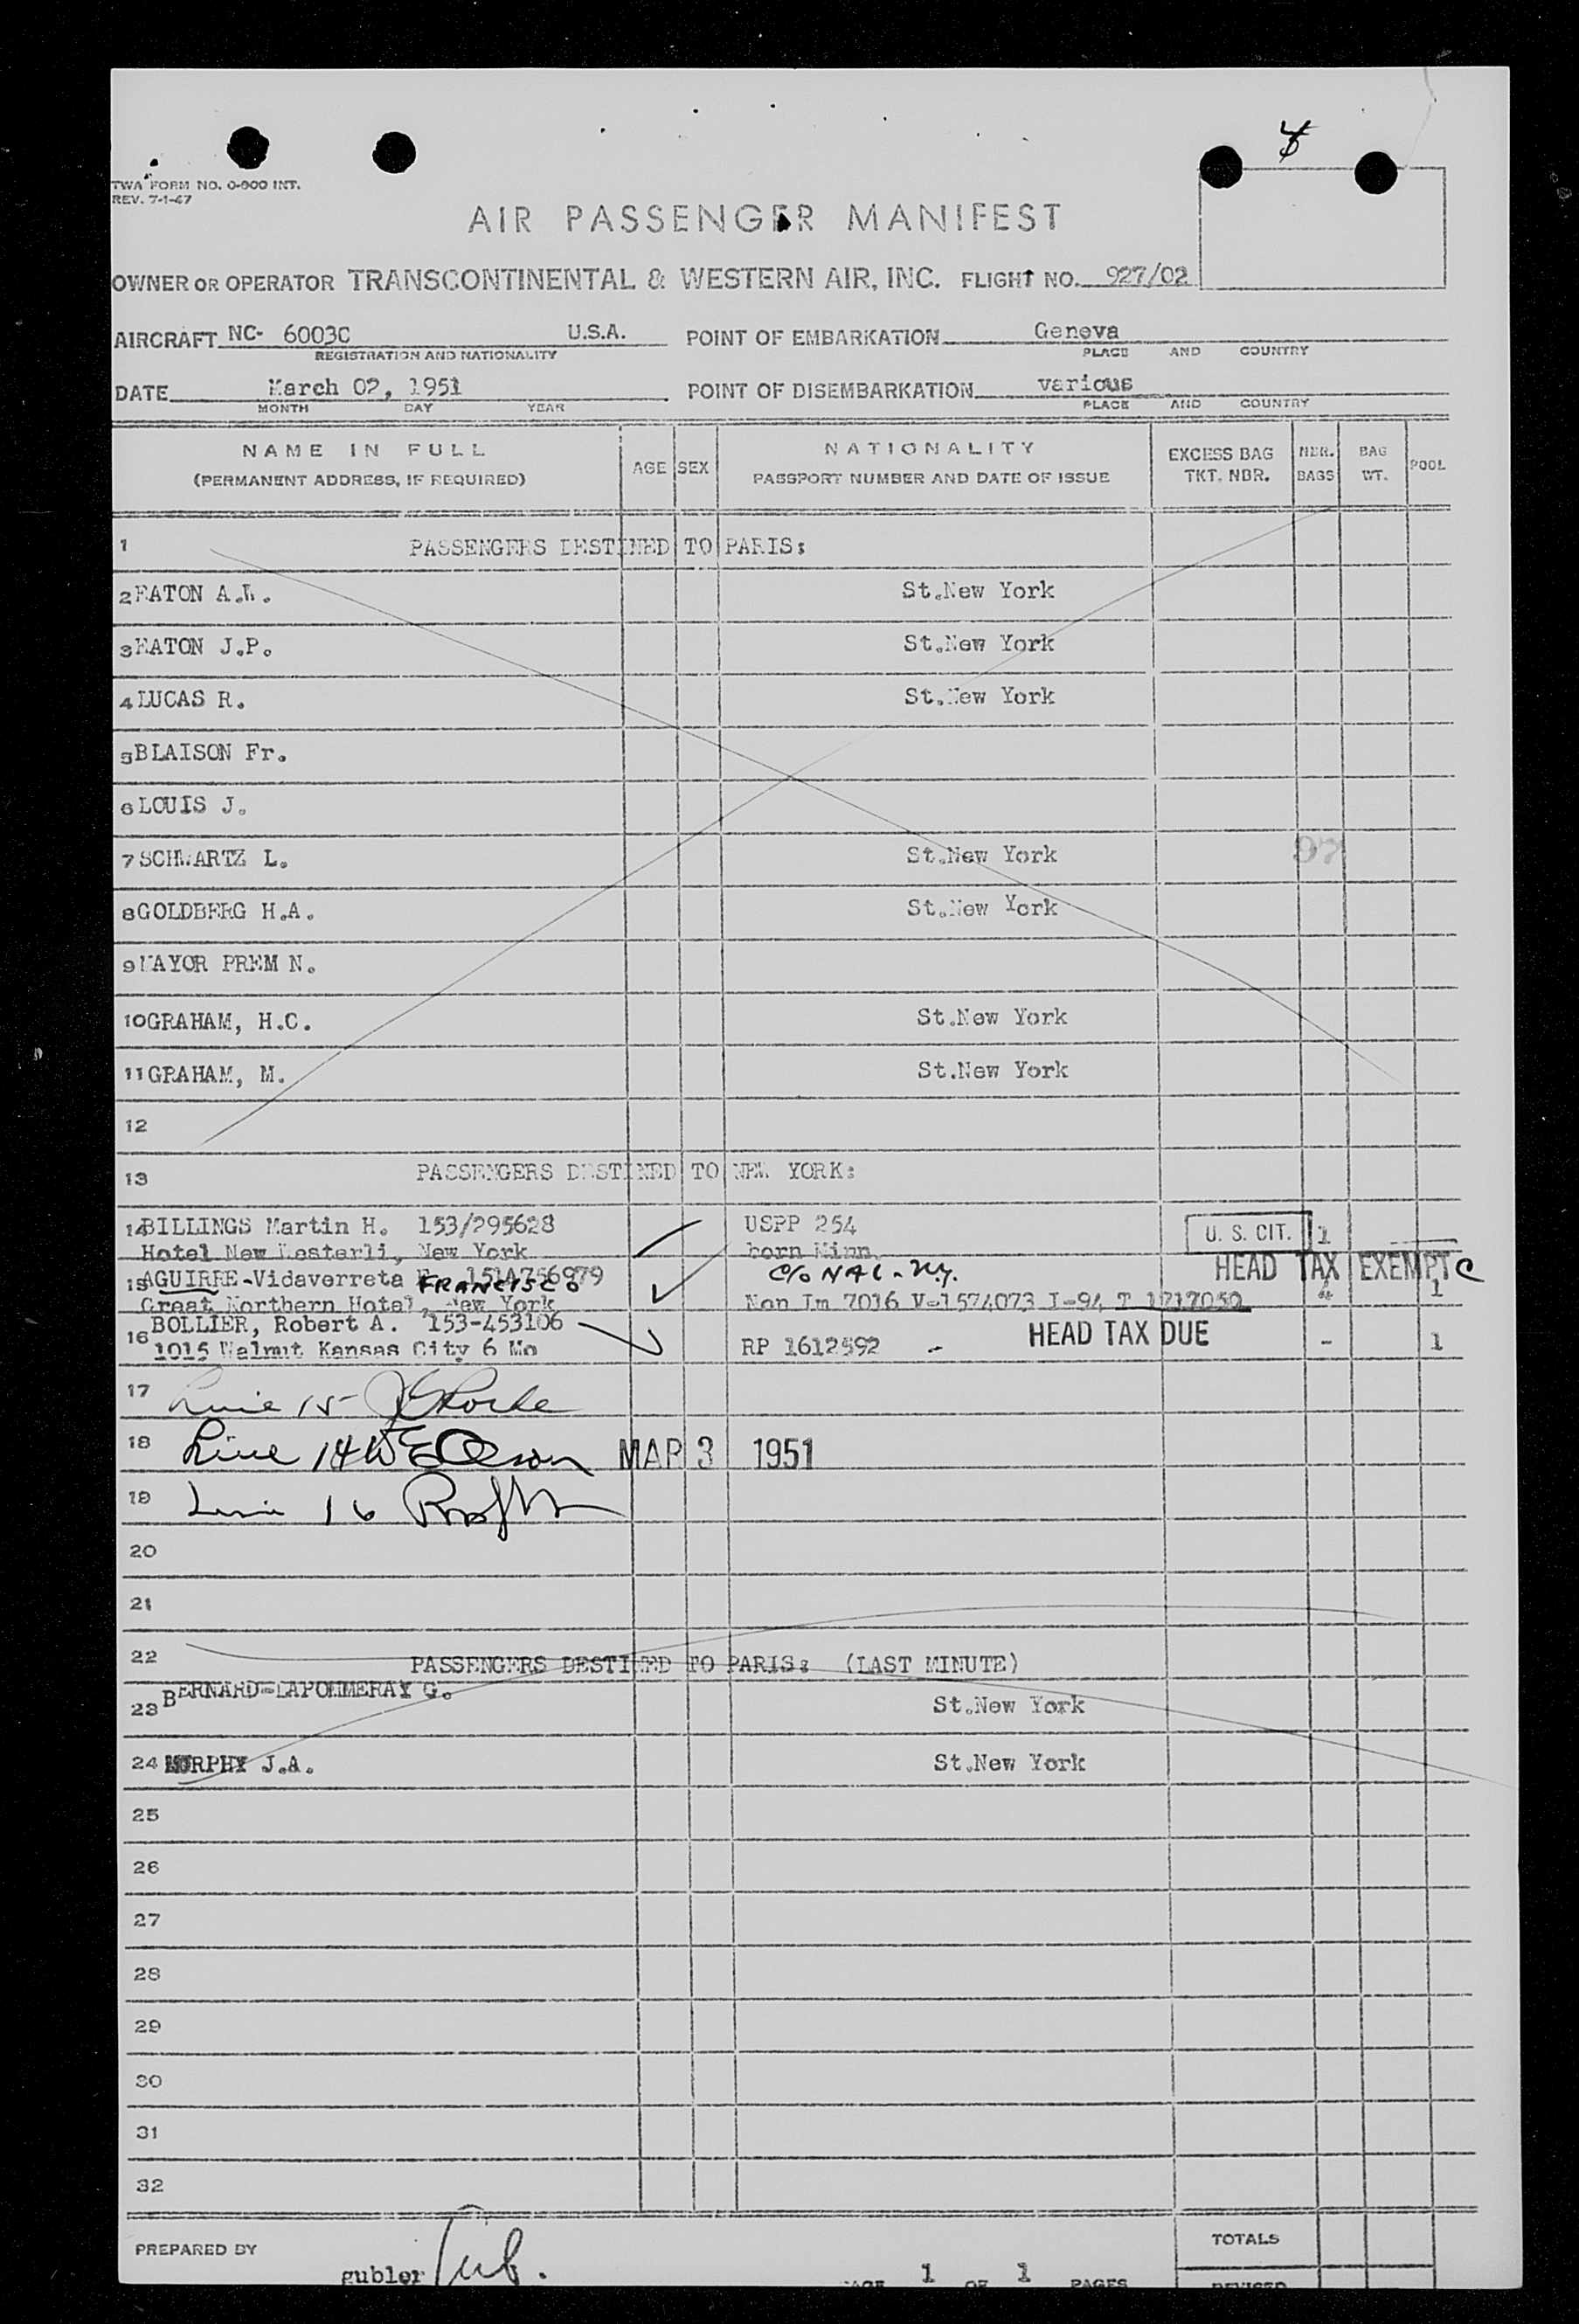 TWA FORM NO. 0-900 INT.
REV. 7-1-47
AIR PASSENGER MANIFEST
OWNER OR OPERATOR TRANSCONTINENTAL & WESTERN AIR, INC. FLIGHT NO. 927/02
AIRCRAFT NC- 6003C U.S.A. POINT OF EMBARKATION Geneva
REGISTRATION AND NATIONALITY PLACE AND COUNTRY
DATE March 02, 1951 POINT OF DISEMBARKATION various
MONTH DAY YEAR PLACE AND COUNTRY
NAME IN FULL AGE SEX NATIONALITY EXCESS BAG NBR. BAG POOL
(PERMANENT ADDRESS, IF REQUIRED) PASSPORT NUMBER AND DATE OF ISSUE TKT. NBR. BAGS WT.
1 PASSENGERS DESTINED TO PARIS:
2 EATON A.W. St.New York
3 EATON J.P. St.New York
4 LUCAS R. St.New York
5 BLAISON Fr.
6 LOUIS J.
7 SCHWARTZ L. St.New York 97
8 GOLDBERG H.A. St.New York
9 PREM N.
10 GRAHAM, H.C. St.New York
11 GRAHAM, M. St.New York
12
13 PASSENGERS DESTINED TO NEW YORK:
14 BILLINGS Martin H. 153/295628 USPP 254 U. S. CIT. 1
Hotel New Westerli, New York born Minn.
15 AGUIRRE-Vidaverreta F. 151A756979 FRANCISCO c/o NAC - N.Y. HEAD TAX EXEMPT C
Great Northern Hotel, New York Non Im 7016 V-1574073 I-94 T 1217050 1
16 BOLLIER, Robert A. 153-453106 HEAD TAX DUE
1015 Walnut Kansas City 6 Mo RP 1612592 - - 1
17 Line 15
18 Line 14 MAR 3 1951
19 Line 16
20
21
22 PASSENGERS DESTINED TO PARIS: (LAST MINUTE)
23 BERNARD-LAPOMMERAY G. St.New York
24 MURPHY J.A. St.New York
25
26
27
28
29
30
31
32
PREPARED BY gubler TOTALS
PAGE 1 OF 1 PAGES REVISED